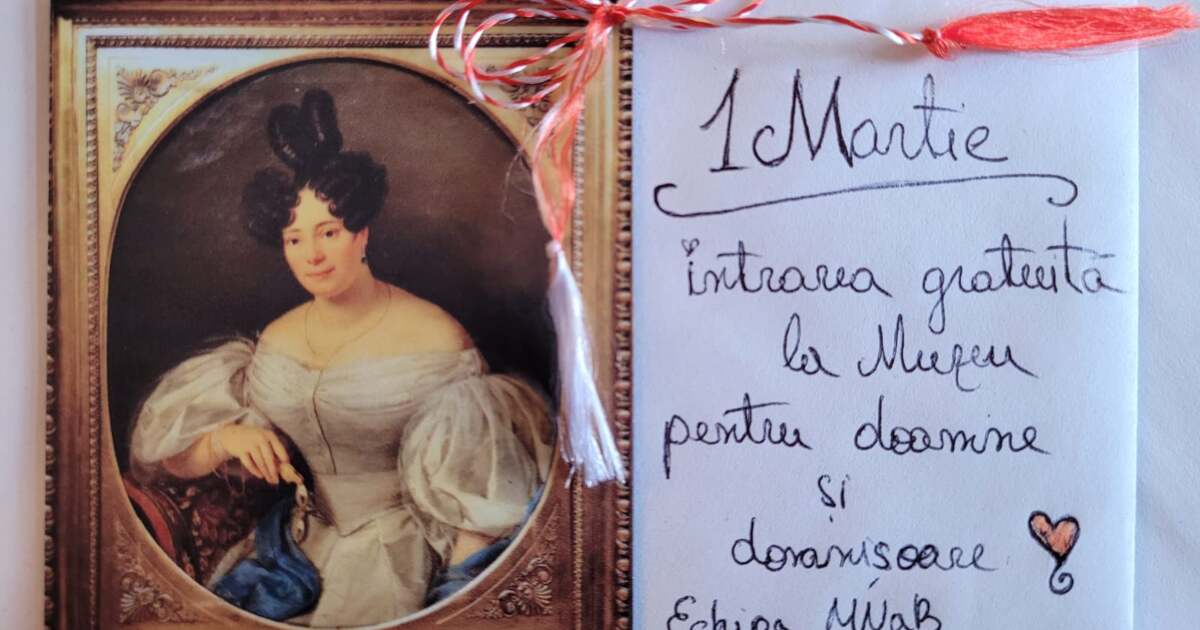 1 Martie
intrarea gratuită
la Muzeu
pentru doamne
și
domnișoare
Echipa MNaB